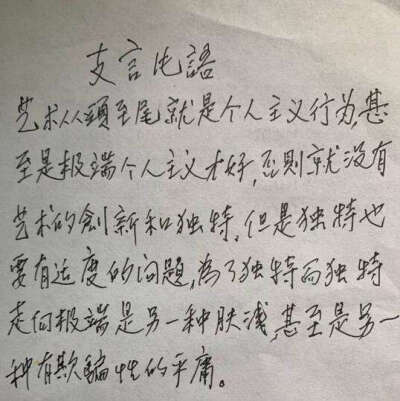 支言㐌語
艺术从頭至尾就是个人主义行为,甚
至是极端个人主义才好,否則就没有
艺术的創新和独特,但是独特也
要有适度的问题,為了独特而独特
走向极端是另一种肤浅,甚至是另一
种有欺騙性的平庸。